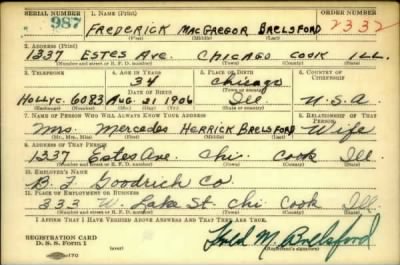 SERIAL NUMBER 1. NAME (Print) ORDER NUMBER
987 FREDERICK MACGREGOR BRELSFORD 2332
(First) (Middle) (Last)
2. ADDRESS (Print)
1337 ESTES AVE. CHICAGO COOK ILL.
(Number and street or R. F. D. number) (Town) (County) (State)
3. TELEPHONE 4. AGE IN YEARS 5. PLACE OF BIRTH 6. COUNTRY OF CITIZENSHIP
34 Chicago
DATE OF BIRTH (Town or county)
HOLLYC. 6083 AUG. 21 1906 Ill. U.S.A.
(Exchange) (Number) (Mo.) (Day) (Yr.) (State or country)
7. NAME OF PERSON WHO WILL ALWAYS KNOW YOUR ADDRESS 8. RELATIONSHIP OF THAT PERSON
Mrs. Mercedes HERRICK BRELSFORD Wife
(Mr., Mrs., Miss) (First) (Middle) (Last)
9. ADDRESS OF THAT PERSON
1337 Estes Ave. Chi. Cook Ill.
(Number and street or R. F. D. number) (Town) (County) (State)
10. EMPLOYER'S NAME
B. F. Goodrich Co
11. PLACE OF EMPLOYMENT OR BUSINESS
333 W. Lake St. Chi Cook Ill.
(Number and street or R. F. D. number) (Town) (County) (State)
I AFFIRM THAT I HAVE VERIFIED ABOVE ANSWERS AND THAT THEY ARE TRUE.
REGISTRATION CARD
D. S. S. Form 1 (over) Fred M. Brelsford
(Registrant's signature)